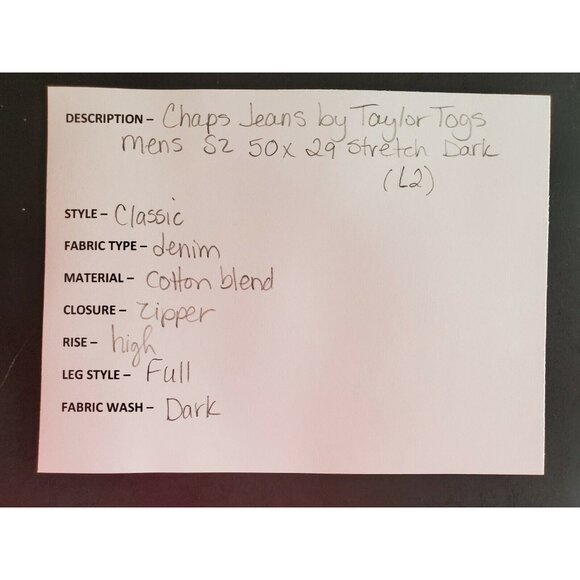 DESCRIPTION – Chaps Jeans by Taylor Togs
mens Sz 50x 29 stretch Dark
(L2)
STYLE – Classic
FABRIC TYPE – denim
MATERIAL – Cotton blend
CLOSURE – zipper
RISE – high
LEG STYLE – Full
FABRIC WASH – Dark